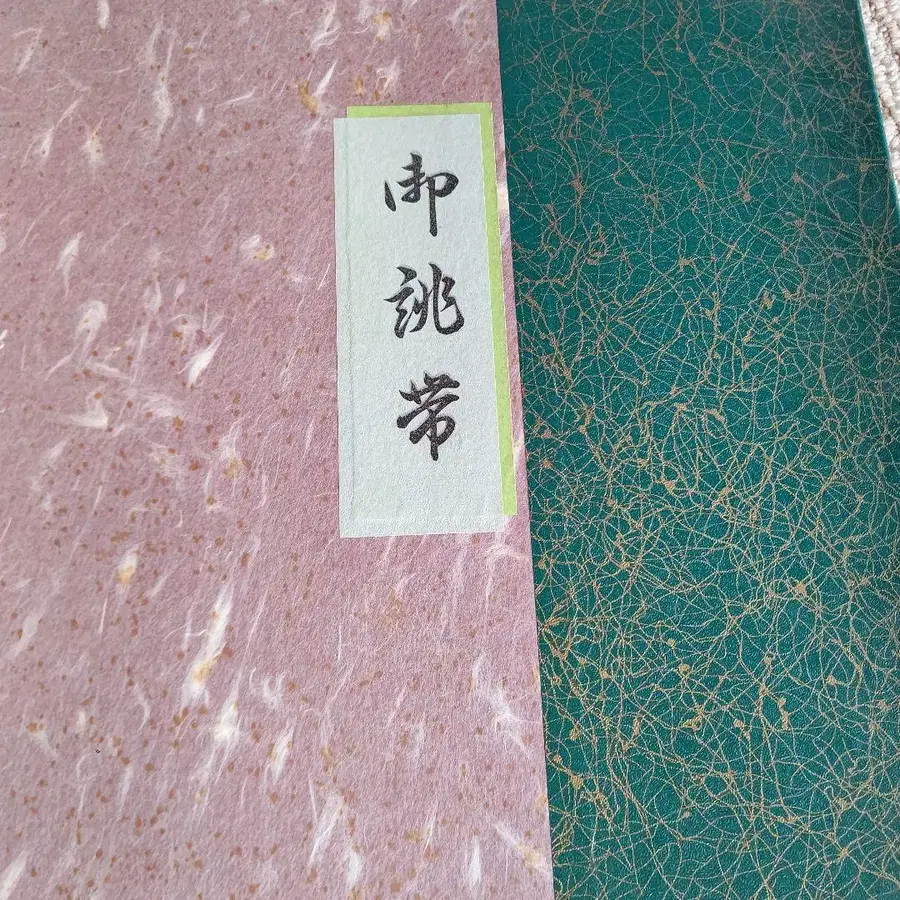 御誂帯